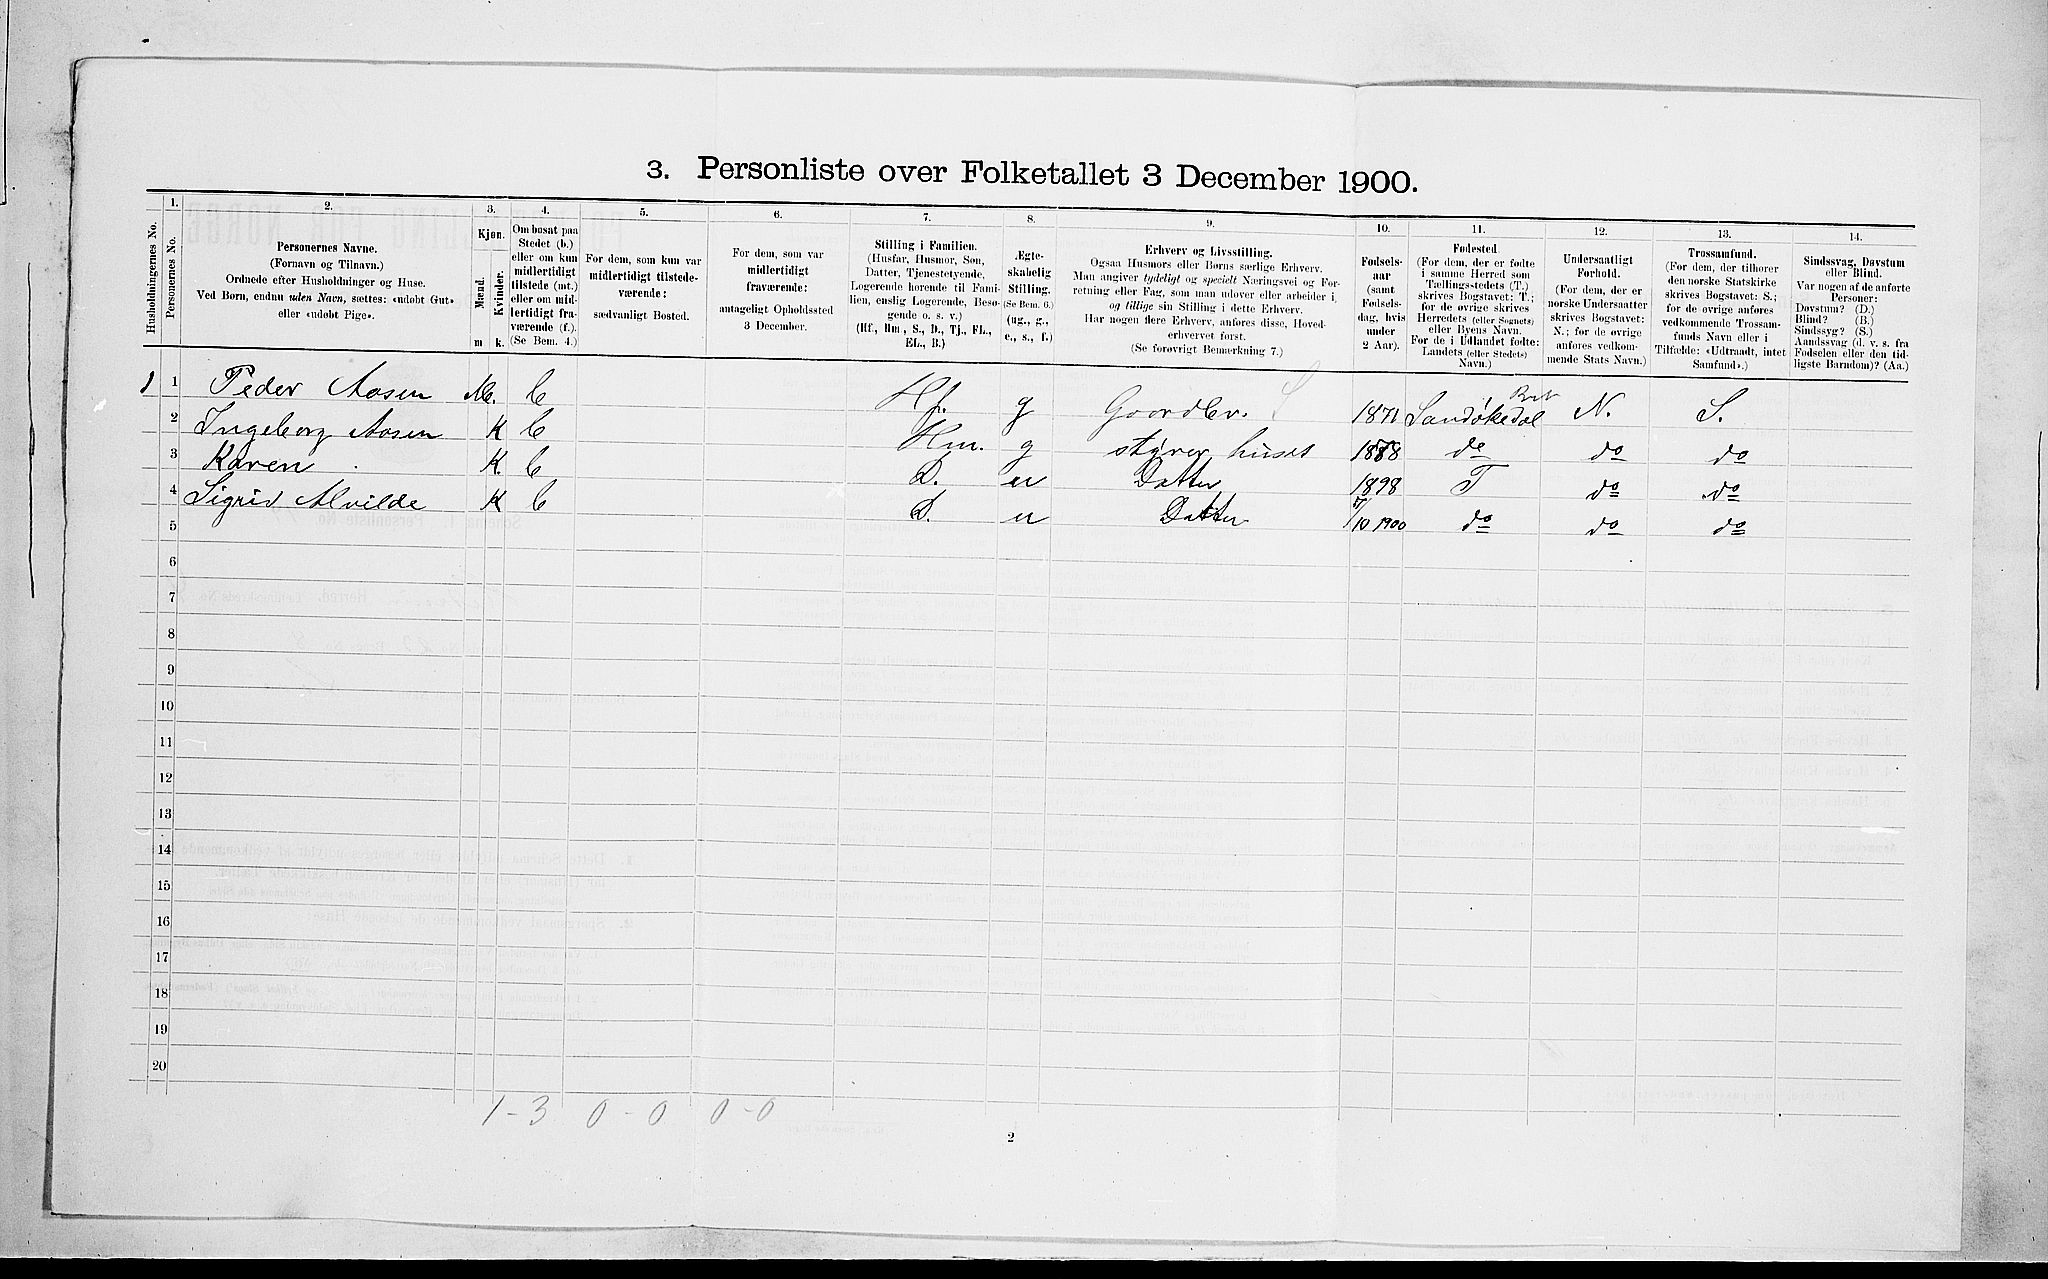 3. Personliste over Folketallet 3 December 1900.
1. 2. 3. 4. 5. 6. 7. 8. 9. 10. 11. 12. 13. 14.
Husholdningernes No.
Personernes No.
Personernes Navne.
(Fornavn og Tilnavn.)
Ordnede efter Husholdninger og Huse.
Ved Børn, endnu uden Navn, sættes: «udøbt Gut»
eller «udøbt Pige».
Kjøn.
Mænd.
Kvinder.
m k.
Om bosat paa
Stedet (b.)
eller om kun
midlertidigt
tilstede (mt.)
eller om mid-
lertidigt fra-
værende (f.).
(Se Bem. 4.)
For dem, som kun var
midlertidigt tilstede-
værende:
sædvanligt Bosted.
For dem, som var
midlertidigt
fraværende:
antageligt Opholdssted
3 December.
Stilling i Familien.
(Husfar, Husmor, Søn,
Datter, Tjenestetyende,
Logerende hørende til Fami-
lien, enslig Logerende, Besø-
gende o. s. v.)
(Hf., Hm., S., D., Tj., FL.,
EL., B.)
Ægte-
skabelig
Stilling.
(Se Bem. 6.)
(ug., g.,
e., s., f.)
Erhverv og Livsstilling.
Ogsaa Husmors eller Børns særlige Erhverv.
Man angiver tydeligt og specielt Næringsvei og For-
retning eller Fag, som man udøver eller arbeider i,
og tillige sin Stilling i dette Erhverv.
Har nogen flere Erhverv, anføres disse, Hoved-
erhvervet først.
(Se forøvrigt Bemerkning 7.)
Fødsels-
aar
(samt
Fødsels-
dag, hvis
under
2 Aar).
Fødested.
(For dem, der er fødte
i samme Herred som
Tællingsstedets (T.)
skrives Bogstavet: T.;
for de øvrige skrives
Herredets (eller Sognets)
eller Byens Navn.
For de i Udlandet fødte:
Landets (eller Stedets)
Navn.)
Undersaatligt
Forhold.
(For dem, der er
norske Undersaatter
skrives Bogstavet:
N.; for de øvrige
anføres vedkom-
mende Stats Navn.)
Trossamfund.
(For dem, der tilhører
den norske Statskirke
skrives Bogstavet: S.;
for de øvrige anføres
vedkommende Trossam-
funds Navn eller i
Tilfælde: «Udtraadt, intet
Samfund».)
Sindssvag, Døvstum
eller Blind.
Var nogen af de anførte
Personer:
Døvstum? (D.)
Blind? (B.)
Sindssyg? (S.)
Aandssvag (d. v. s. fra
Fødselen eller den tid-
ligste Barndom)? (Aa.)
1 1 Peder Aasen M. b Hf. g Gaardbr. S 1871 Sandøkedal N. S.
2 Ingeborg Aasen K b Hm. g styrer huset do do do
3 Karen K. b D. u Datter 1898 T do do
4 Sigrid Alvilde K b D. u Datter /10 1900 do do do
5
6
7
8
9
10
11
12
13
14
15
16
17
18
19
20
1-3 0-0 0-0
2